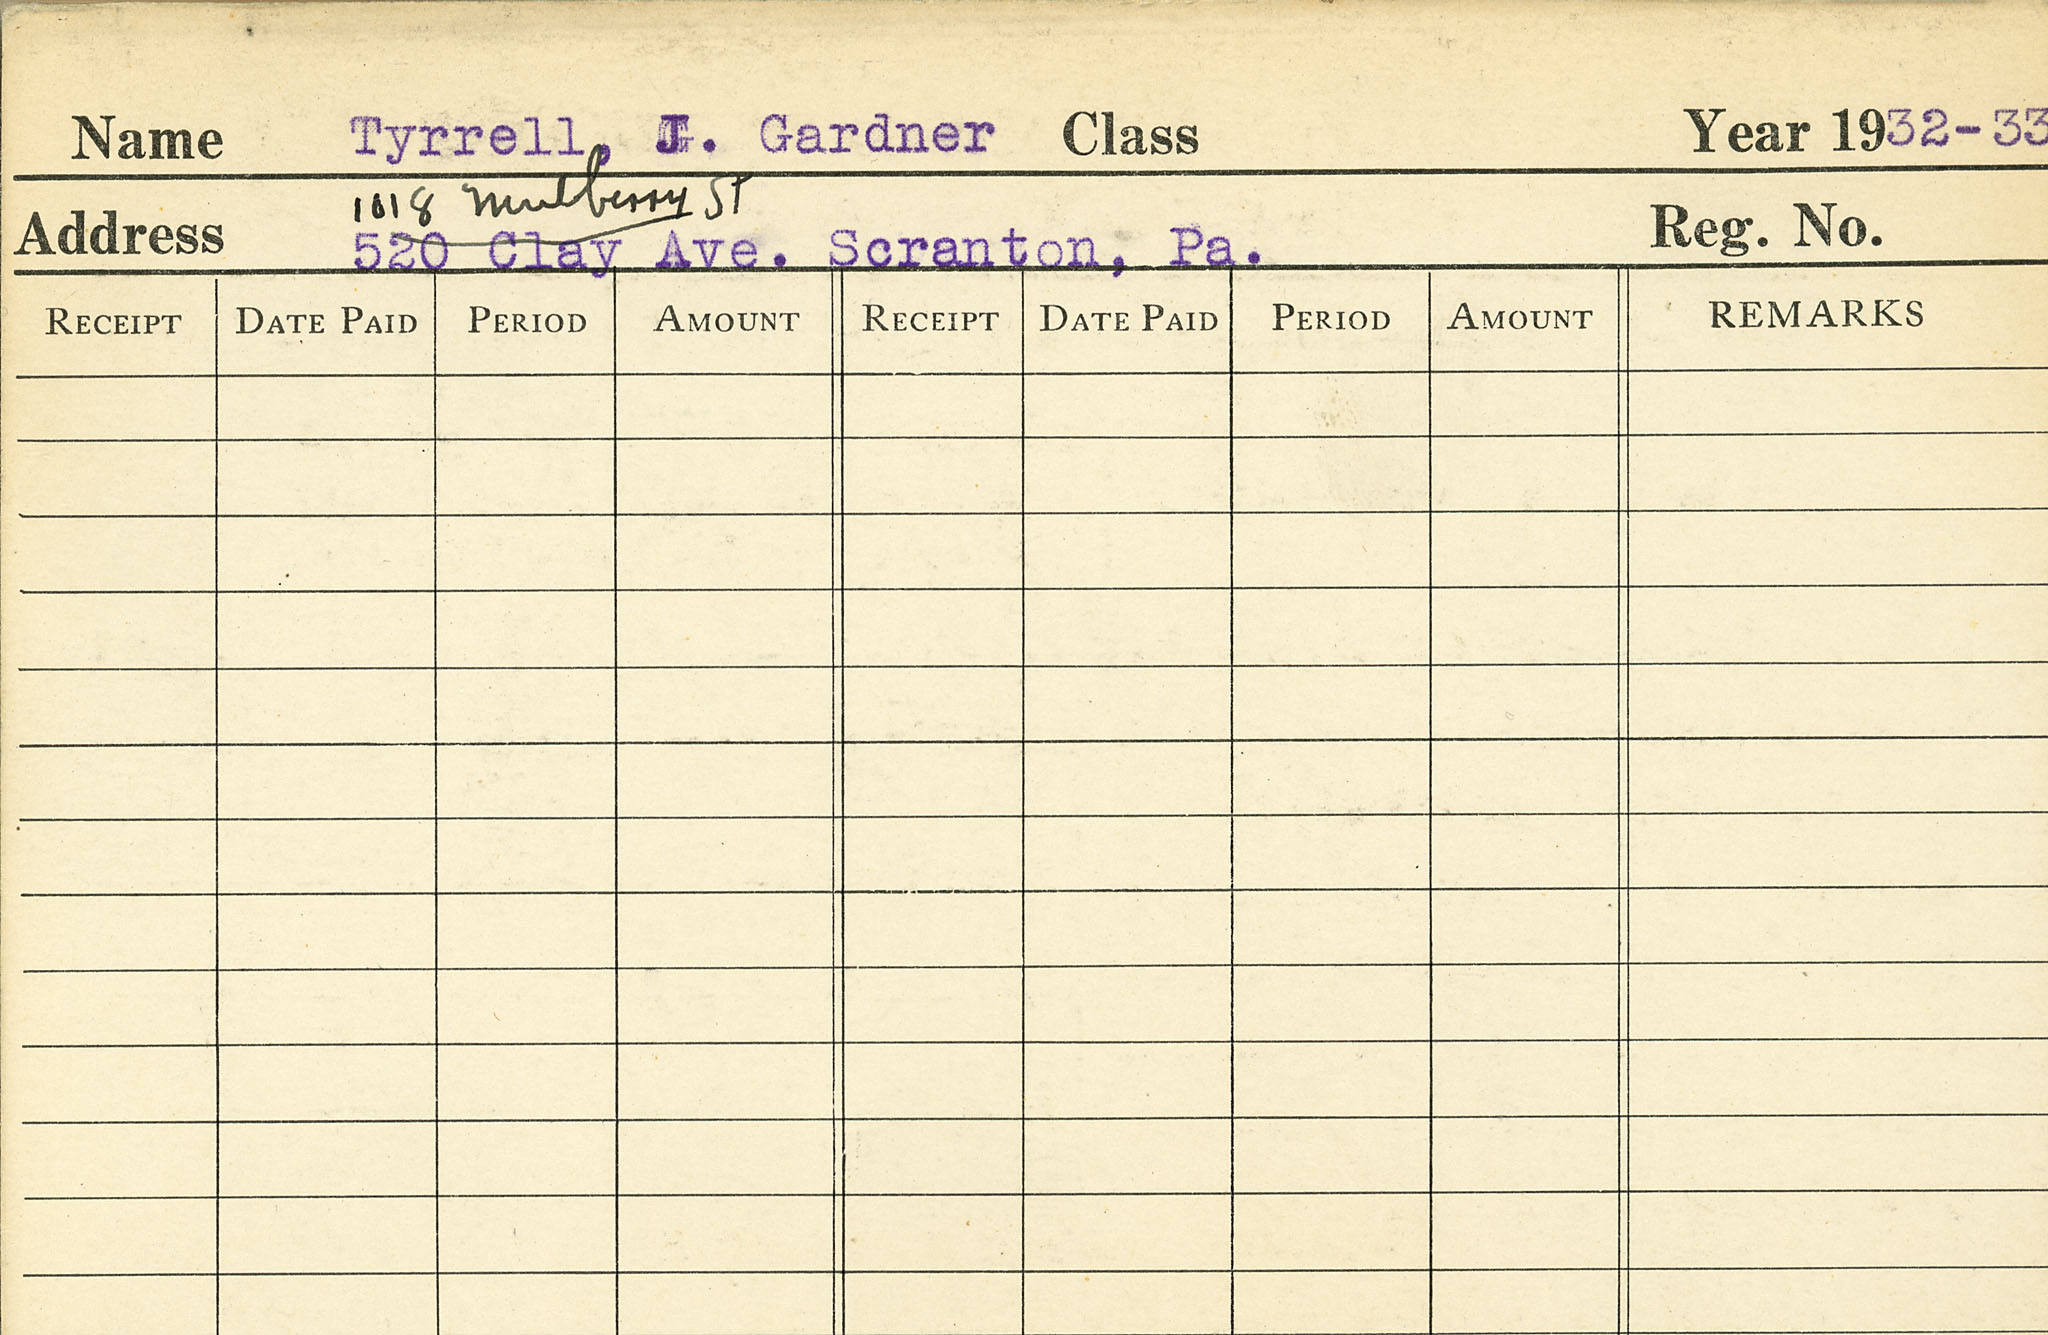 Name Tyrrell, J. Gardner Class Year 1932-33
1018 Mulberry St
Address 520 Clay Ave. Scranton, Pa. Reg. No.
RECEIPT DATE PAID PERIOD AMOUNT RECEIPT DATE PAID PERIOD AMOUNT REMARKS